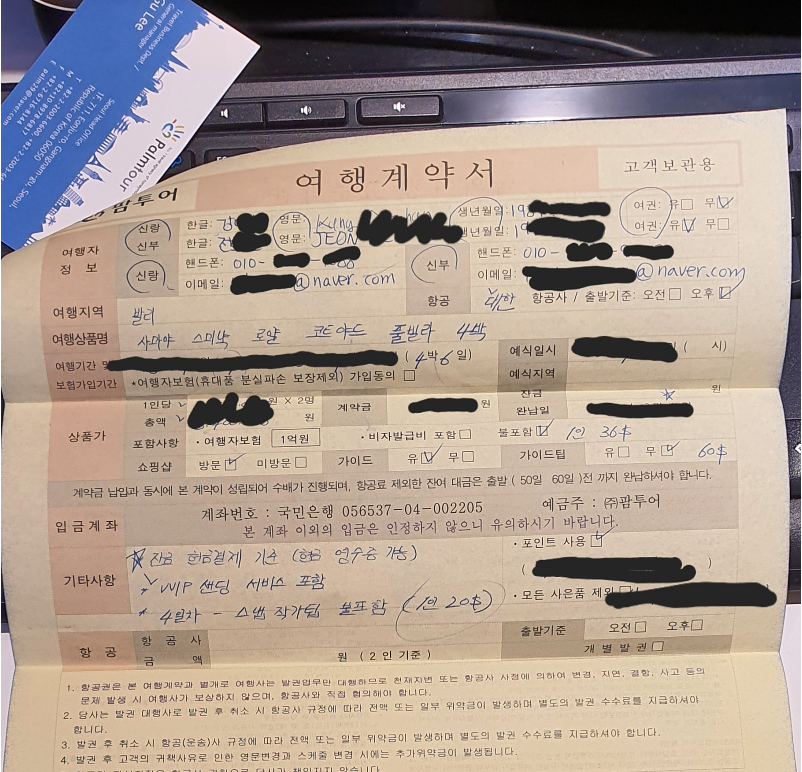 Gu Lee
General manager
Travel Business Dept. /
Seoul Head Office
Republic of Korea 06050
palmtour
여행계약서
고객보관용
팜투어
여행자 정보
신랑 한글: 영문: 생년월일: 19 여권: 유□ 무☑
신부 한글: 영문: JEON 생년월일: 1 여권: 유☑ 무□
신랑 핸드폰: 010- 신부 핸드폰: 010-
이메일: @naver.com 이메일: @naver.com
항공 대한 항공사 / 출발기준: 오전□ 오후☑
여행지역 발리
여행상품명 사마야 스미냑 로얄 코트야드 풀빌라 4박
여행기간 및 (4박 6일) 예식일시 ( 시)
보험가입기간 *여행자보험(휴대품 분실파손 보장제외) 가입동의 □ 예식지역
상품가
1인당 원 X 2명 계약금 원 잔금 원
총액 원 완납일
포함사항 · 여행자보험 1억원 · 비자발급비 포함□ 불포함☑ 1인 36$
쇼핑샵 방문☑ 미방문□ 가이드 유☑ 무□ 가이드팁 유□ 무☑ 60$
계약금 납입과 동시에 본 계약이 성립되어 수배가 진행되며, 항공료 제외한 잔여 대금은 출발 ( 50일 60일 )전 까지 완납하셔야 합니다.
입금계좌
계좌번호 : 국민은행 056537-04-002205 예금주 : ㈜팜투어
본 계좌 이외의 입금은 인정하지 않으니 유의하시기 바랍니다.
기타사항
* 잔금 현금결제 기준 (현금 영수증 가능)
VVIP 샌딩 서비스 포함
* 4일차 - 스냅 작가팁 불포함 (1인 20$)
· 포인트 사용☑
( )
· 모든 사은품 제외□
항공 항공사 출발기준 오전□ 오후□
금액 원 ( 2인 기준 ) 개별발권□
1. 항공권은 본 여행계약과 별개로 여행사는 발권업무만 대행하므로 천재지변 또는 항공사 사정에 의하여 변경, 지연, 결항, 사고 등의
문제 발생 시 여행사가 보상하지 않으며, 항공사와 직접 협의해야 합니다.
2. 당사는 발권 대행사로 발권 후 취소 시 항공사 규정에 따라 전액 또는 일부 위약금이 발생하며 별도의 발권 수수료를 지급하셔야
합니다.
3. 발권 후 취소 시 항공(운송)사 규정에 따라 전액 또는 일부 위약금이 발생하며 별도의 발권 수수료를 지급하셔야 합니다.
4. 발권 후 고객의 귀책사유로 인한 영문변경과 스케줄 변경 시에는 추가위약금이 발생됩니다.